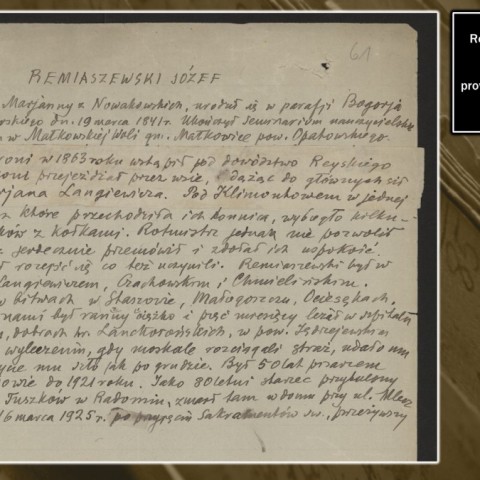 61
REMIASZEWSKI JÓZEF
Marjanny z Nowakowskich, urodził się w parafji Bogorja
rskiego dn. 19 marca 1841 r. Ukończył Seminarium nauczycielskie
w Małkowskiej Woli gm. Małkowice pow. Opatowskiego.
roni w 1863 roku wstąpił pod dowództwo Reyskiego
przejeżdżał przez wieś, dążąc do głównych sił
rjana Langiewicza. Pod Klimontowem w jednej
z które przechodziła ich konnica, wybiegło kilku-
ków z kołkami. Rotmistrz jednak nie pozwolił
z serdecznie przemówił i zdołał ich uspokoić.
ł rozejść się co też uczynili. Remiaszewski był w
Langiewiczem, Czachowskim i Chmieleńskim.
w bitwach w Staszowie, Małogoszczu, Ociesękach,
nami był ranny ciężko i pięć miesięcy leżał w szpitalu
, dobrach hr. Lanckorońskich, w pow. Jędrzejewskim
wyleczeniu, gdy moskale rozciągali straż, udało mu
życie mu szło jak po grudzie. Był 50 lat pisarzem
owie do 1921 roku. Jako 80 letni starzec przybyły
Tuszków w Radomiu, zmarł tam w domu przy ul. Mlecz
16 marca 1925 r. po przyjęciu Sakramentów św., przeżywszy
Re
prov